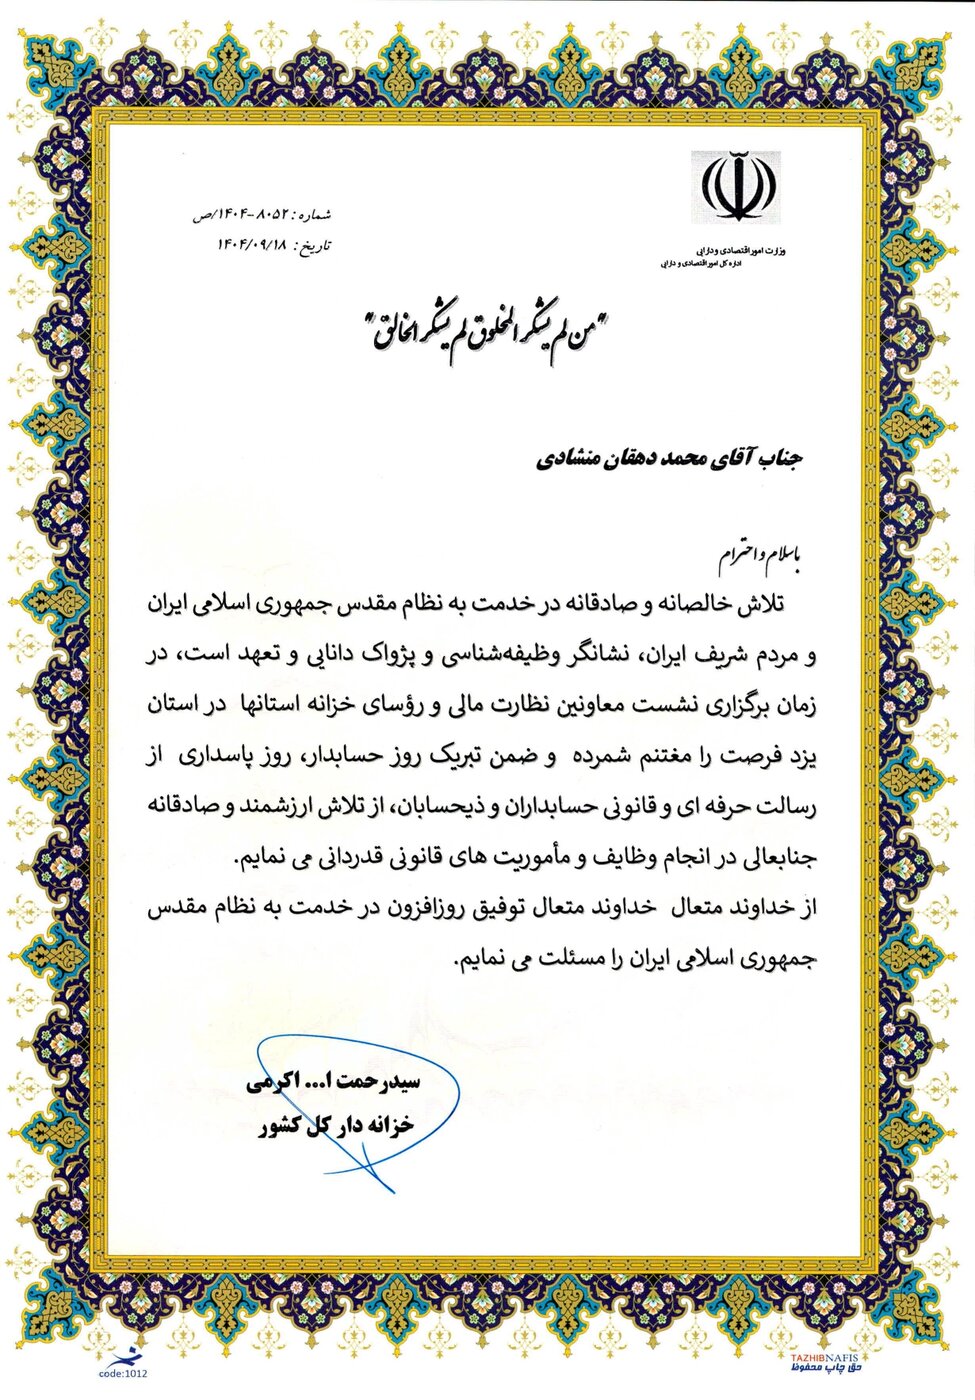 شماره : ۸۰۵۲-۱۴۰۴/ص
تاریخ : ۱۴۰۴/۰۹/۱۸
وزارت امور اقتصادی و دارایی
اداره کل امور اقتصادی و دارایی
"من لم یشکر المخلوق لم یشکر الخالق"
جناب آقای محمد دهقان منشادی
باسلام و احترام
تلاش خالصانه و صادقانه در خدمت به نظام مقدس جمهوری اسلامی ایران
و مردم شریف ایران، نشانگر وظیفه‌شناسی و پژواک دانایی و تعهد است، در
زمان برگزاری نشست معاونین نظارت مالی و رؤسای خزانه استانها در استان
یزد فرصت را مغتنم شمرده و ضمن تبریک روز حسابدار، روز پاسداری از
رسالت حرفه ای و قانونی حسابداران و ذیحسابان، از تلاش ارزشمند و صادقانه
جنابعالی در انجام وظایف و مأموریت های قانونی قدردانی می نمایم.
از خداوند متعال خداوند متعال توفیق روزافزون در خدمت به نظام مقدس
جمهوری اسلامی ایران را مسئلت می نمایم.
سیدرحمت ا... اکرمی
خزانه دار کل کشور
code:1012
TAZHIBNAFIS
حق چاپ محفوظ